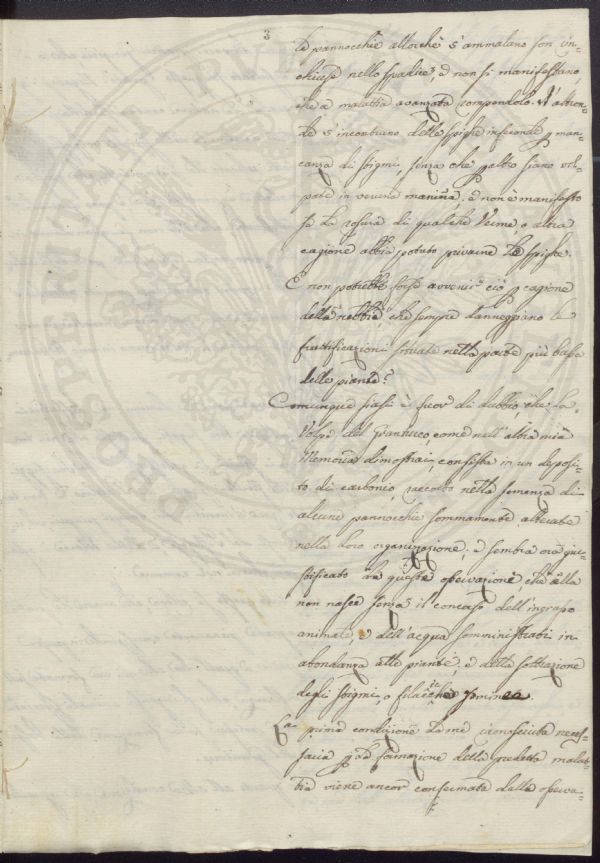 3
le pannocchie allorchè s'ammalano son in-
chiuse nello spadice, e non si manifestano
che a malattia avanzata rompendolo. D'altron-
de s'incontrano delle spighe infeconde p man-
canza di stigmi, senza che p altro siano vol-
pate in veruna maniera, e non è manifesto
se la rosura di qualche Verme, o altra
cagione abbia potuto privarne la spiga.
E non potrebbe forse avvenir ciò p cagione
della nebbia, che sempre danneggiano le
fruttificazioni situate nella parte più bassa
delle piante?
Comunque siasi è fuor di dubbio che la
Volpe del Granturco, come nell'altra mia
Memoria dimostrai, consista in un deposi-
to di carbonio, raccolto nella semenza di
alcune pannocchie sommamente alterate
nella loro organizzazione; e sembra ora giu-
stificato da queste osservazioni che ella
non nasce senza il concorso dell'ingrasso
animale, e dell'acqua somministrati in
abondanza alle piante; e della sottrazione
degli stigmi, o filacciche femminee.
La prima condizione da me riconosciuta neces-
saria p la formazione della predetta malat-
tia viene ancor confermata dalle osserva-